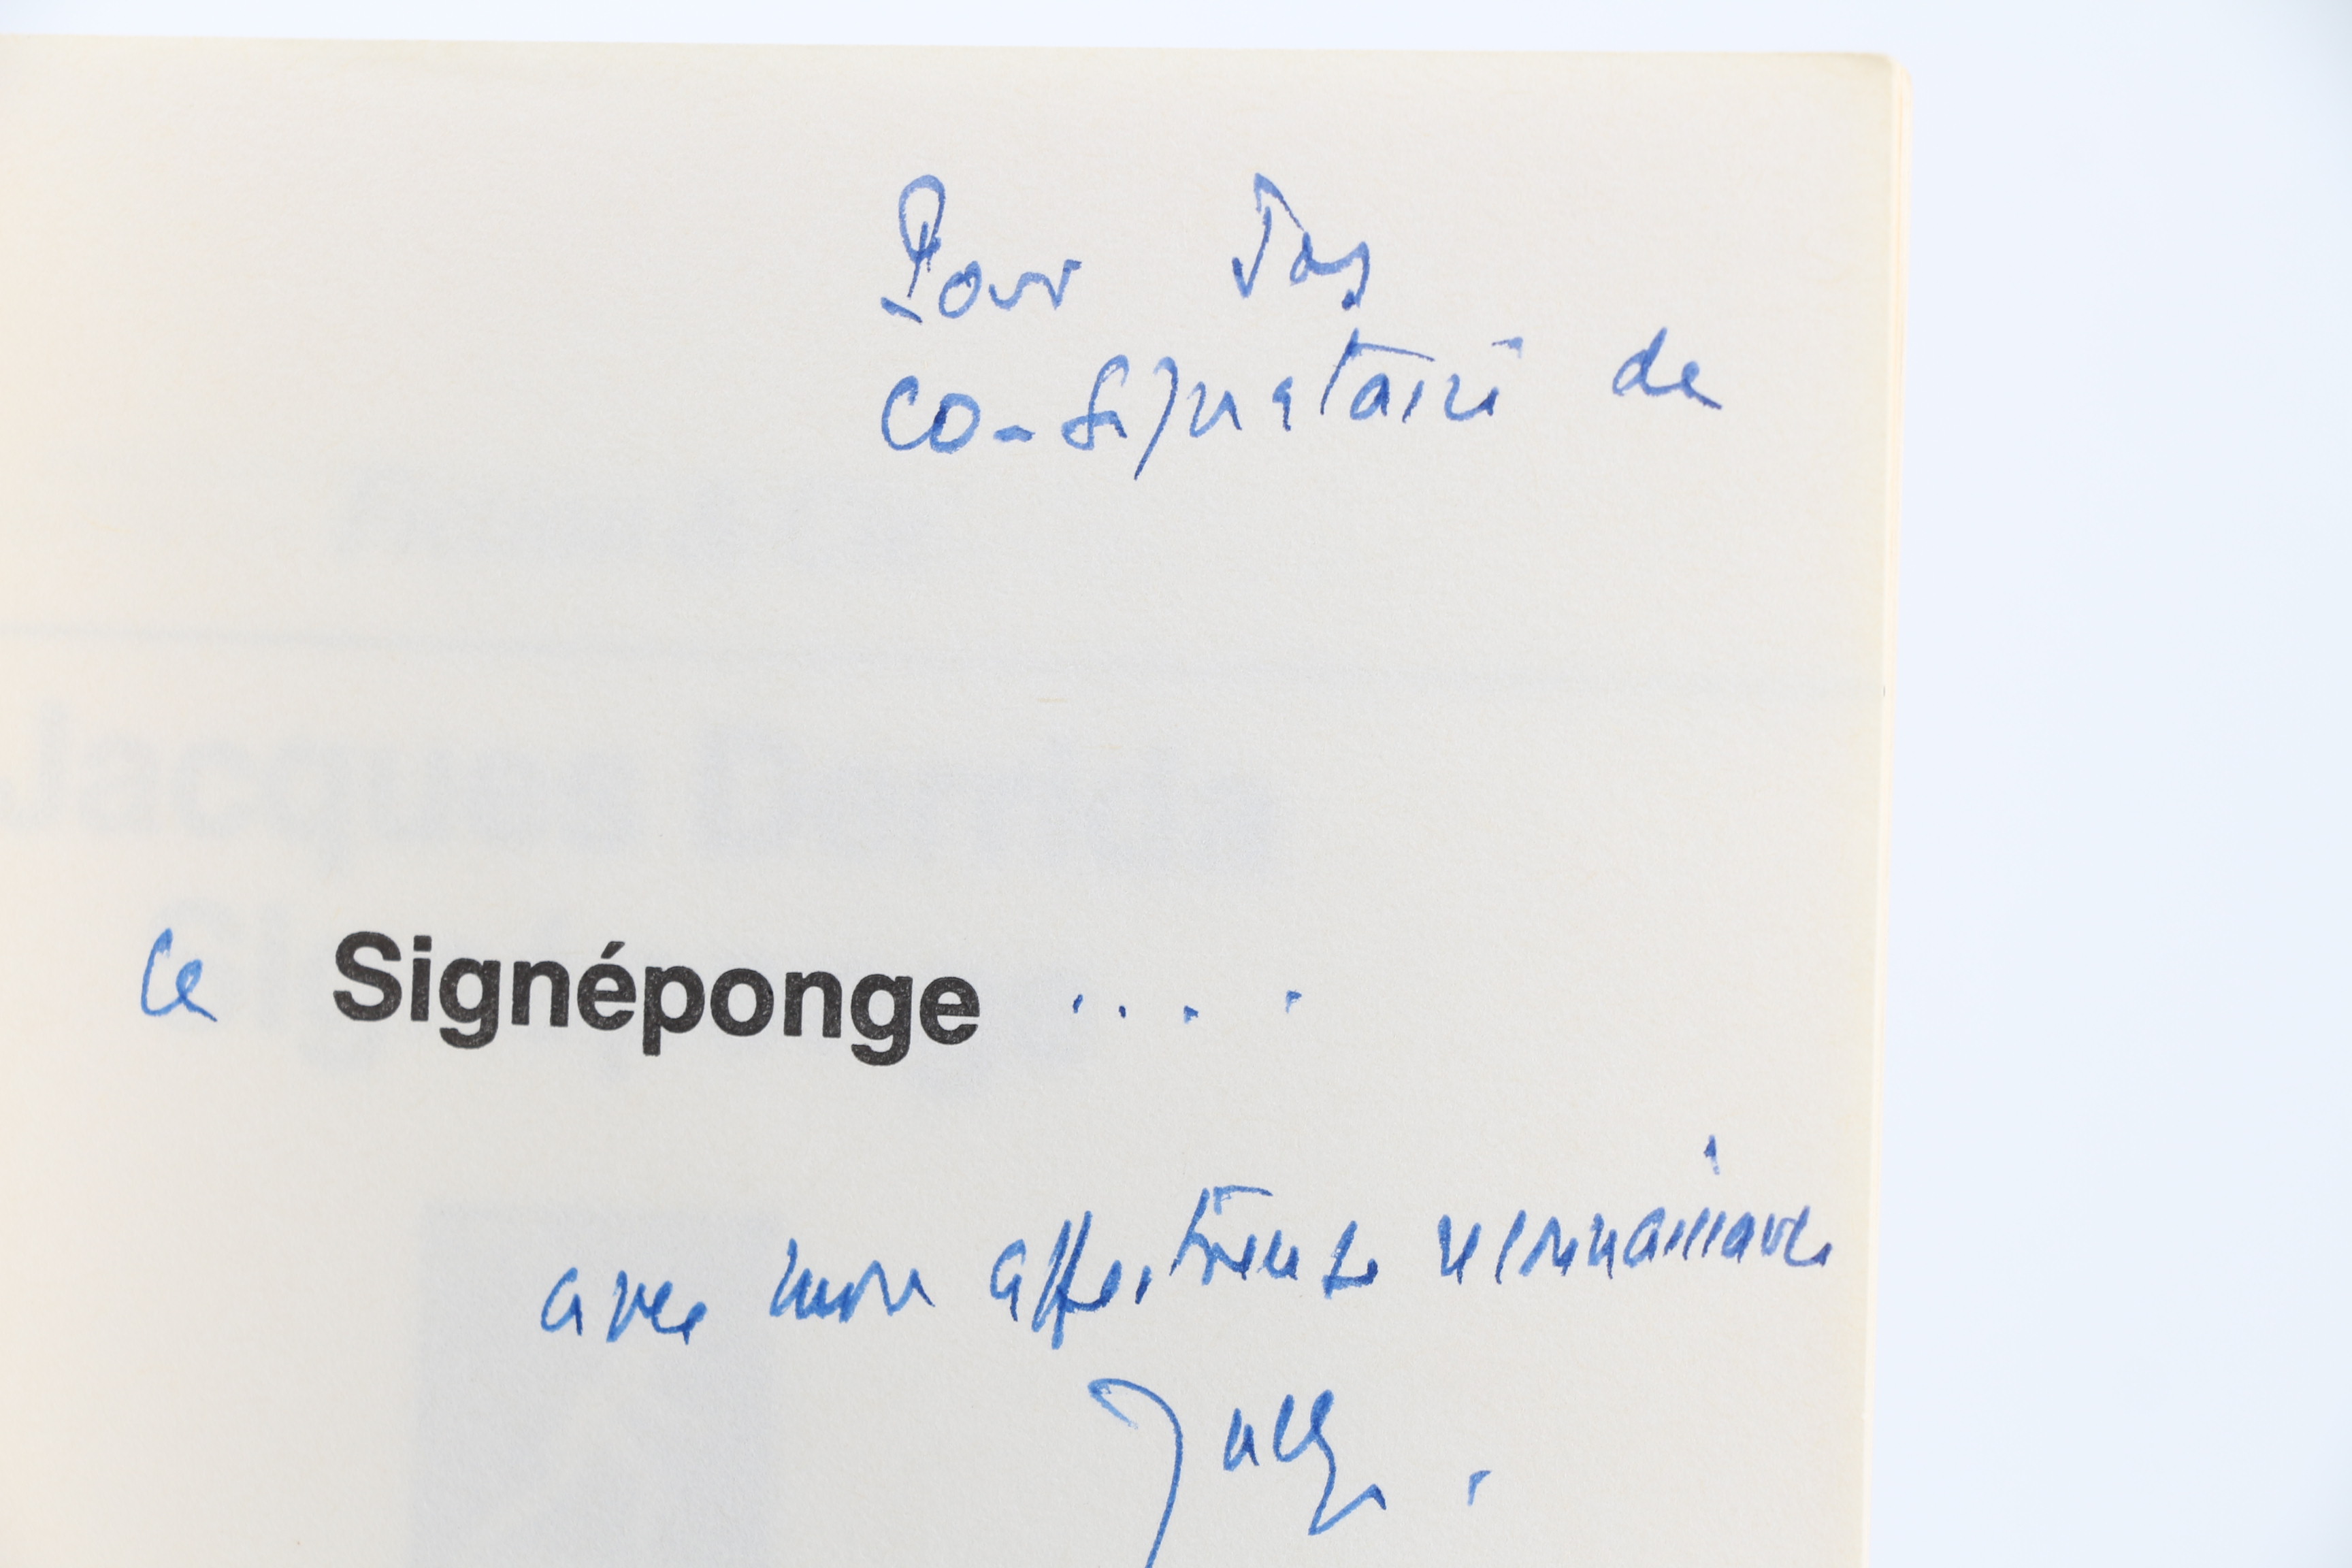 Pour Jos
co-signataire de
ce Signéponge ....
avec mon affectueuse reconnaissance
Jacques.